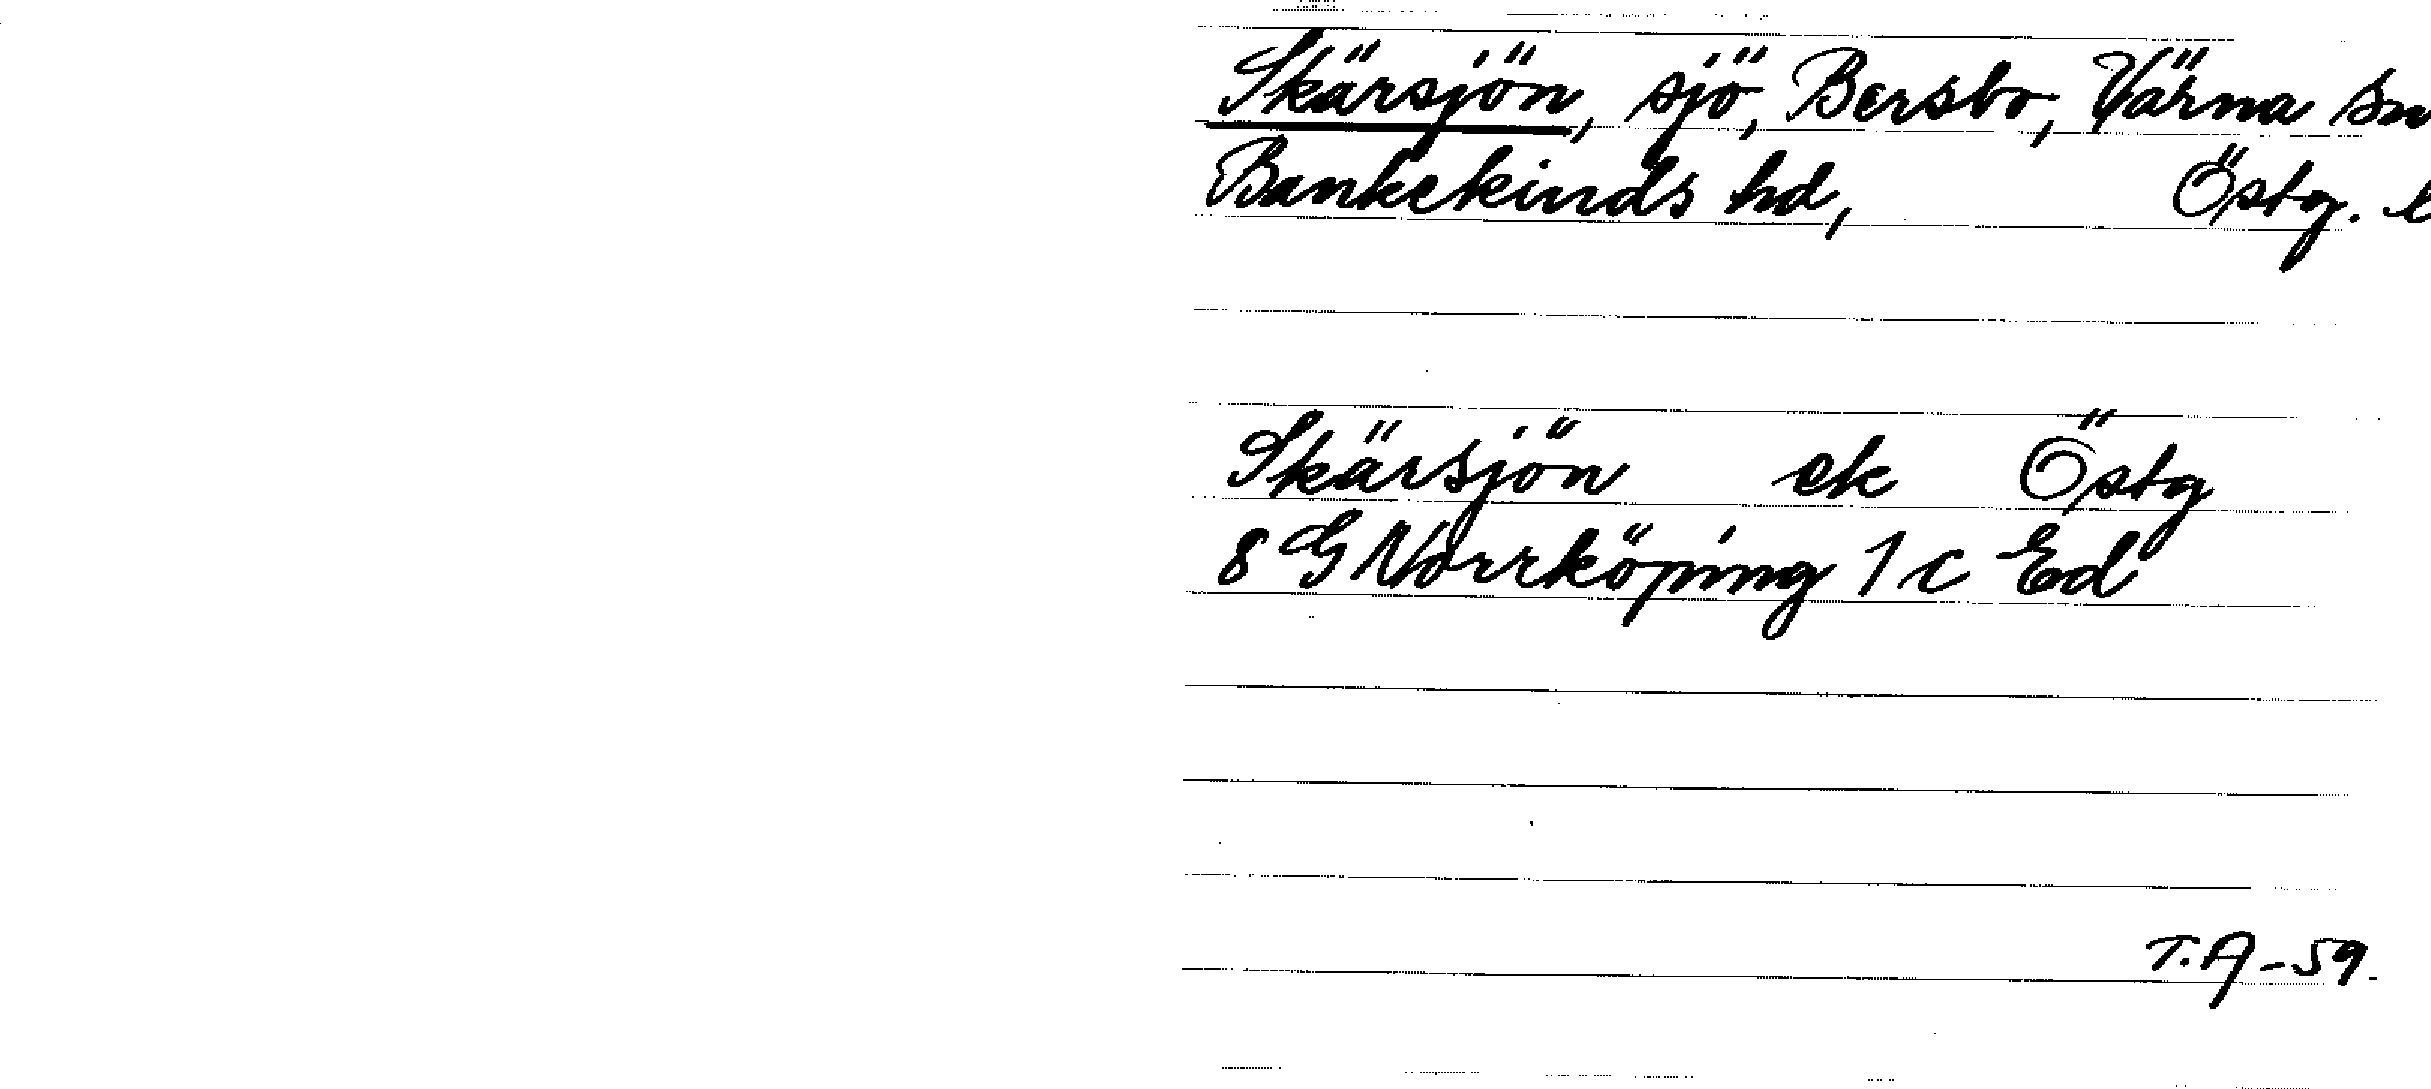 Skärsjön, sjö, Bersbo, Värna sn
Bankekinds hd, Östg. l
Skärsjön ek Östg
8 G Norrköping 1 c Ed
T.A -59.